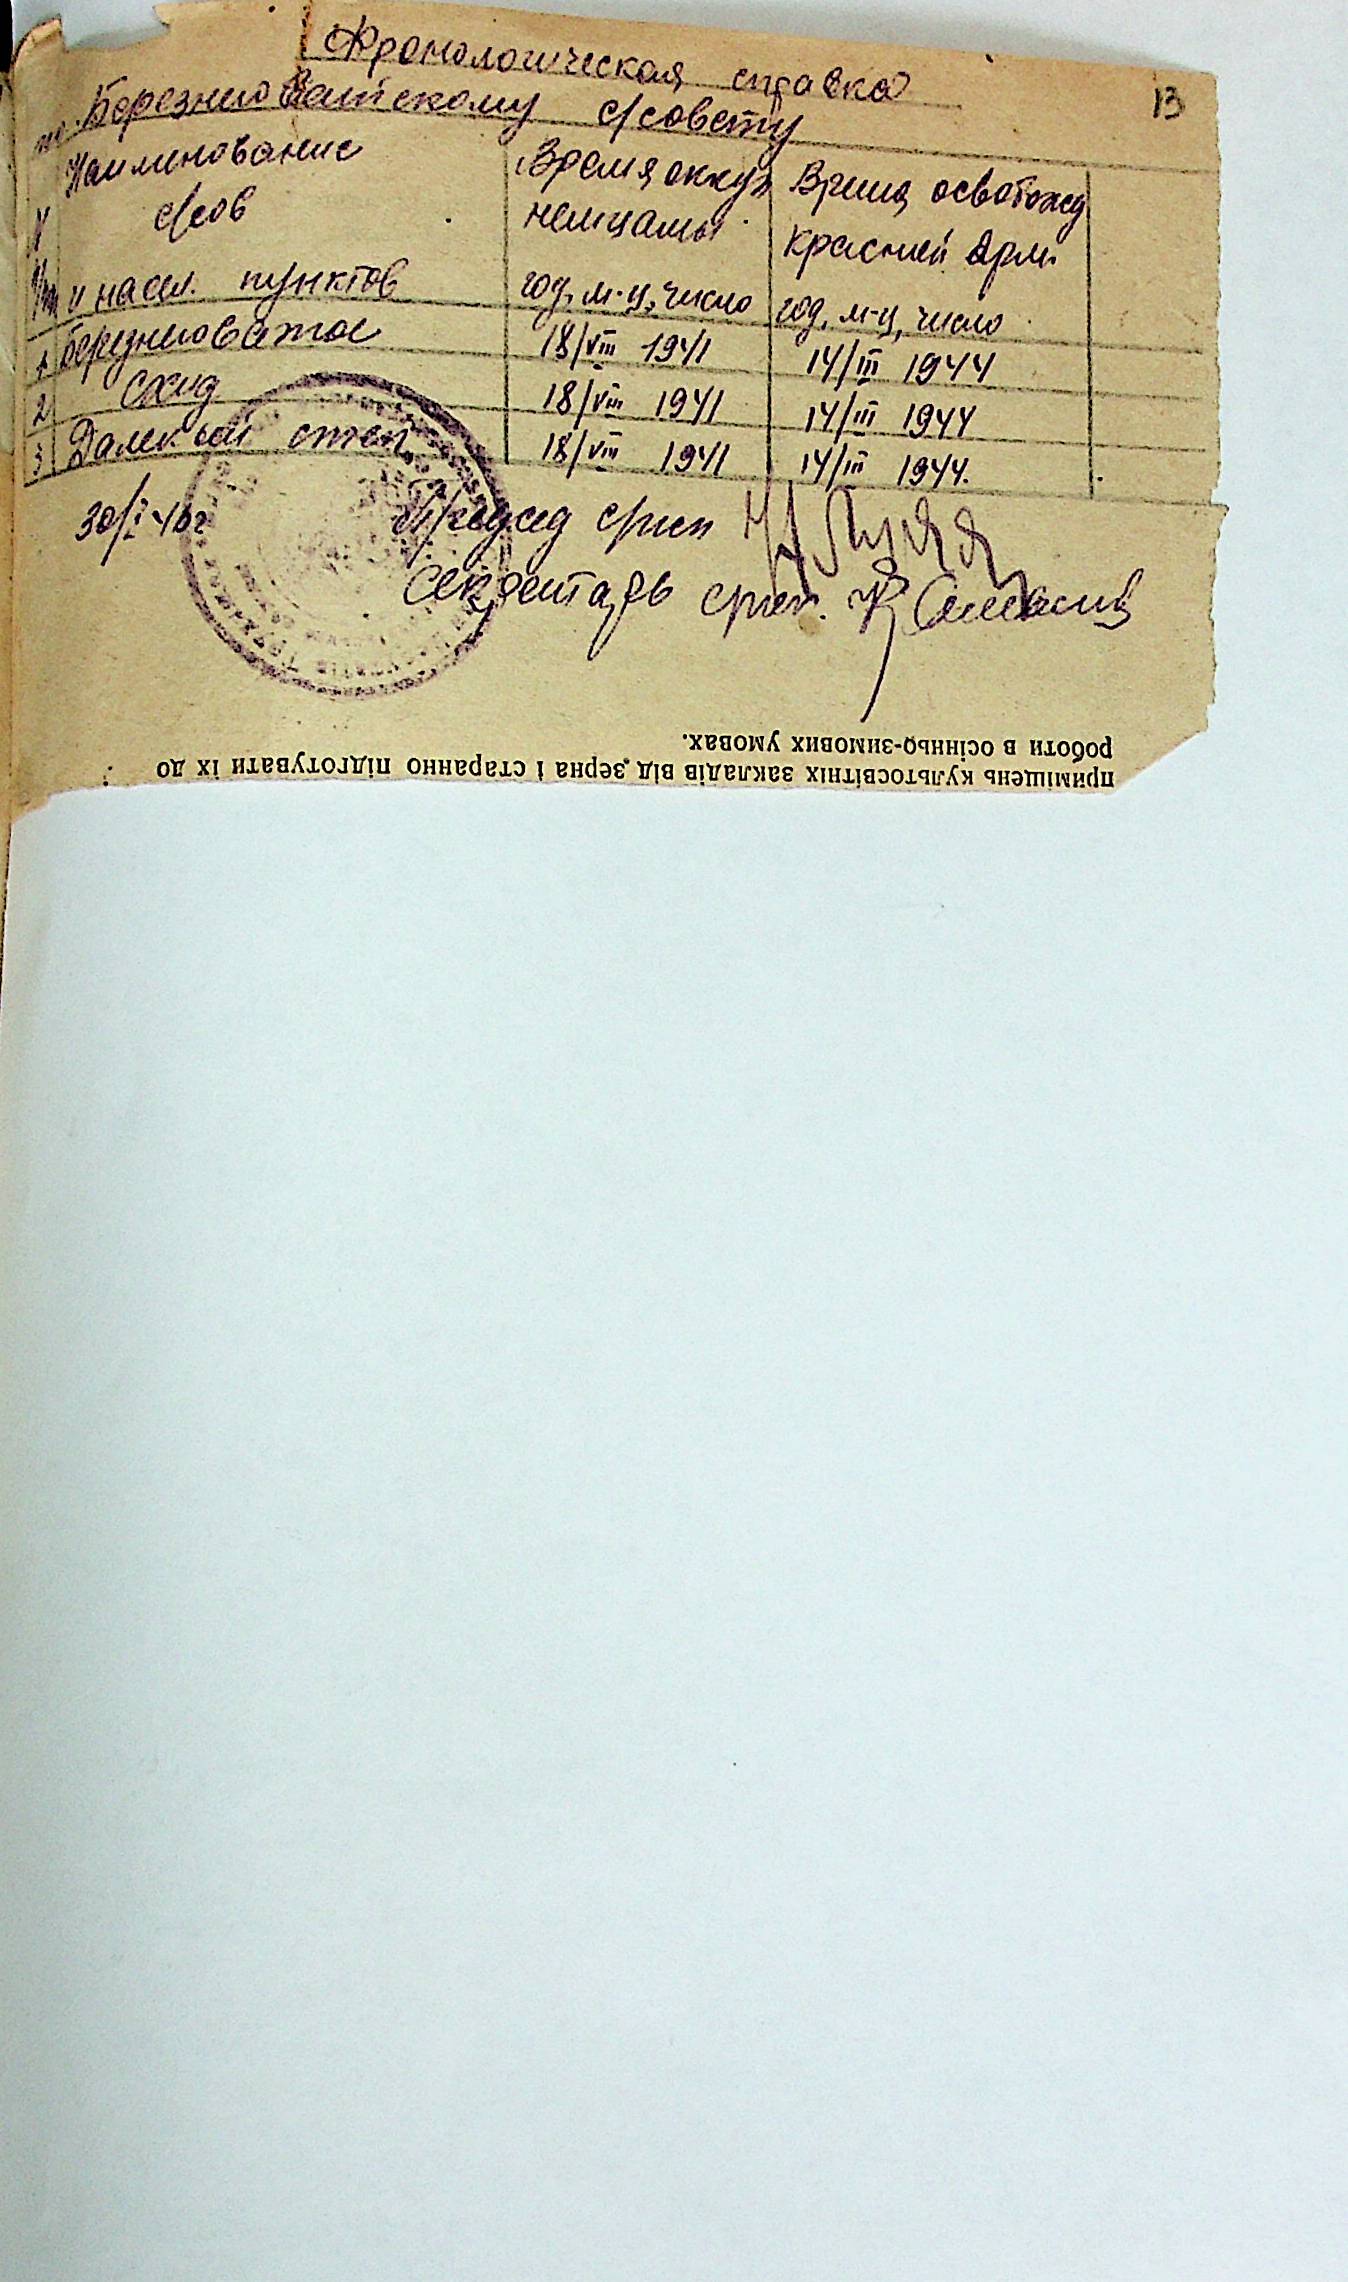 Хронологическая справка
13
по Березниговатскому с/совету
N п/п
Наименование с/сов и насел. пунктов
Время оккуп немцами год, м-ц, число
Время освобожд красней Арми год, м-ц, число
1 Березниговатое 18/VIII 1941 14/III 1944
2 Схид 18/VIII 1941 14/III 1944
3 Далекый степ. 18/VIII 1941 14/III 1944.
30/I 46г Председ с/исп
Секретарь с/исп.
приміщень культосвітніх закладів від зерна і старанно підготувати їх до
роботи в осінньо-зимових умовах.